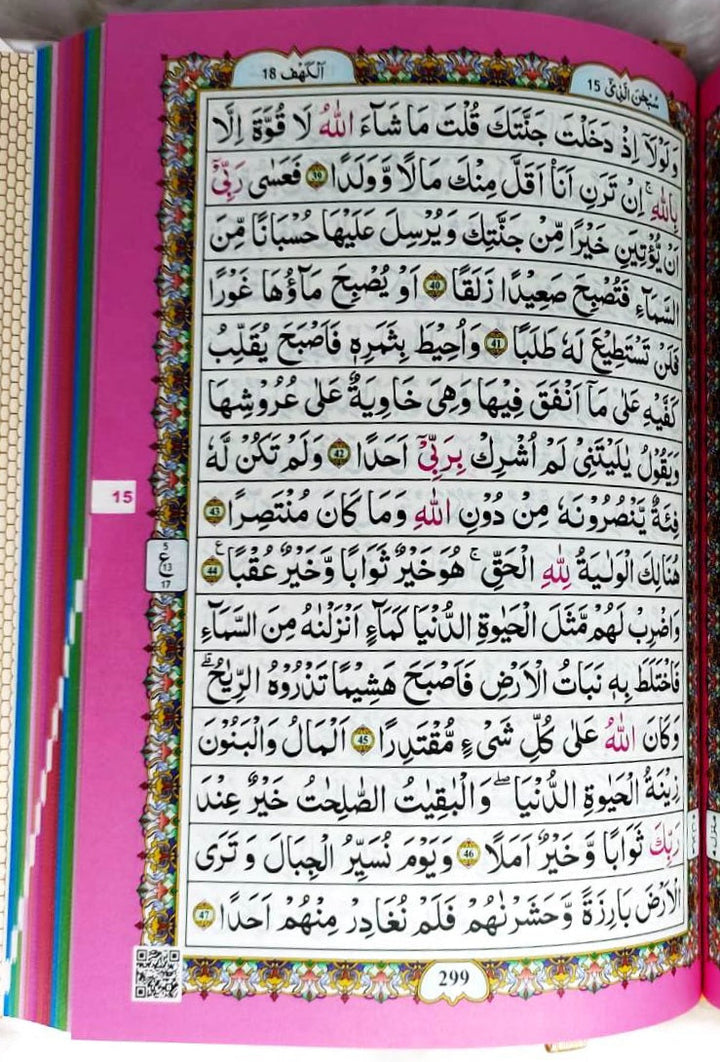 الكهف 18
سبحن الذي 15
وَلَوْلَاۤ اِذْ دَخَلْتَ جَنَّتَكَ قُلْتَ مَا شَآءَ اللّٰهُ لَا قُوَّةَ اِلَّا
بِاللّٰهِ ۚ اِنْ تَرَنِ اَنَا اَقَلَّ مِنْكَ مَالًا وَّوَلَدًا 39 فَعَسٰى رَبِّيْۤ
اَنْ يُّؤْتِيَنِ خَيْرًا مِّنْ جَنَّتِكَ وَيُرْسِلَ عَلَيْهَا حُسْبَانًا مِّنَ
السَّمَآءِ فَتُصْبِحَ صَعِيْدًا زَلَقًا 40 اَوْ يُصْبِحَ مَآؤُهَا غَوْرًا
فَلَنْ تَسْتَطِيْعَ لَهٗ طَلَبًا 41 وَاُحِيْطَ بِثَمَرِهٖ فَاَصْبَحَ يُقَلِّبُ
كَفَّيْهِ عَلٰى مَاۤ اَنْفَقَ فِيْهَا وَهِيَ خَاوِيَةٌ عَلٰى عُرُوْشِهَا
وَيَقُوْلُ يٰلَيْتَنِيْ لَمْ اُشْرِكْ بِرَبِّيْۤ اَحَدًا 42 وَلَمْ تَكُنْ لَّهٗ
فِئَةٌ يَّنْصُرُوْنَهٗ مِنْ دُوْنِ اللّٰهِ وَمَا كَانَ مُنْتَصِرًا 43
هُنَالِكَ الْوَلَايَةُ لِلّٰهِ الْحَقِّ ۚ هُوَ خَيْرٌ ثَوَابًا وَّخَيْرٌ عُقْبًا 44
5 ع 13 17
وَاضْرِبْ لَهُمْ مَّثَلَ الْحَيٰوةِ الدُّنْيَا كَمَآءٍ اَنْزَلْنٰهُ مِنَ السَّمَآءِ
فَاخْتَلَطَ بِهٖ نَبَاتُ الْاَرْضِ فَاَصْبَحَ هَشِيْمًا تَذْرُوْهُ الرِّيٰحُ ؕ
وَكَانَ اللّٰهُ عَلٰى كُلِّ شَيْءٍ مُّقْتَدِرًا 45 اَلْمَالُ وَالْبَنُوْنَ
زِيْنَةُ الْحَيٰوةِ الدُّنْيَا ۚ وَالْبٰقِيٰتُ الصّٰلِحٰتُ خَيْرٌ عِنْدَ
رَبِّكَ ثَوَابًا وَّخَيْرٌ اَمَلًا 46 وَيَوْمَ نُسَيِّرُ الْجِبَالَ وَتَرَى
الْاَرْضَ بَارِزَةً وَّحَشَرْنٰهُمْ فَلَمْ نُغَادِرْ مِنْهُمْ اَحَدًا 47
15
299